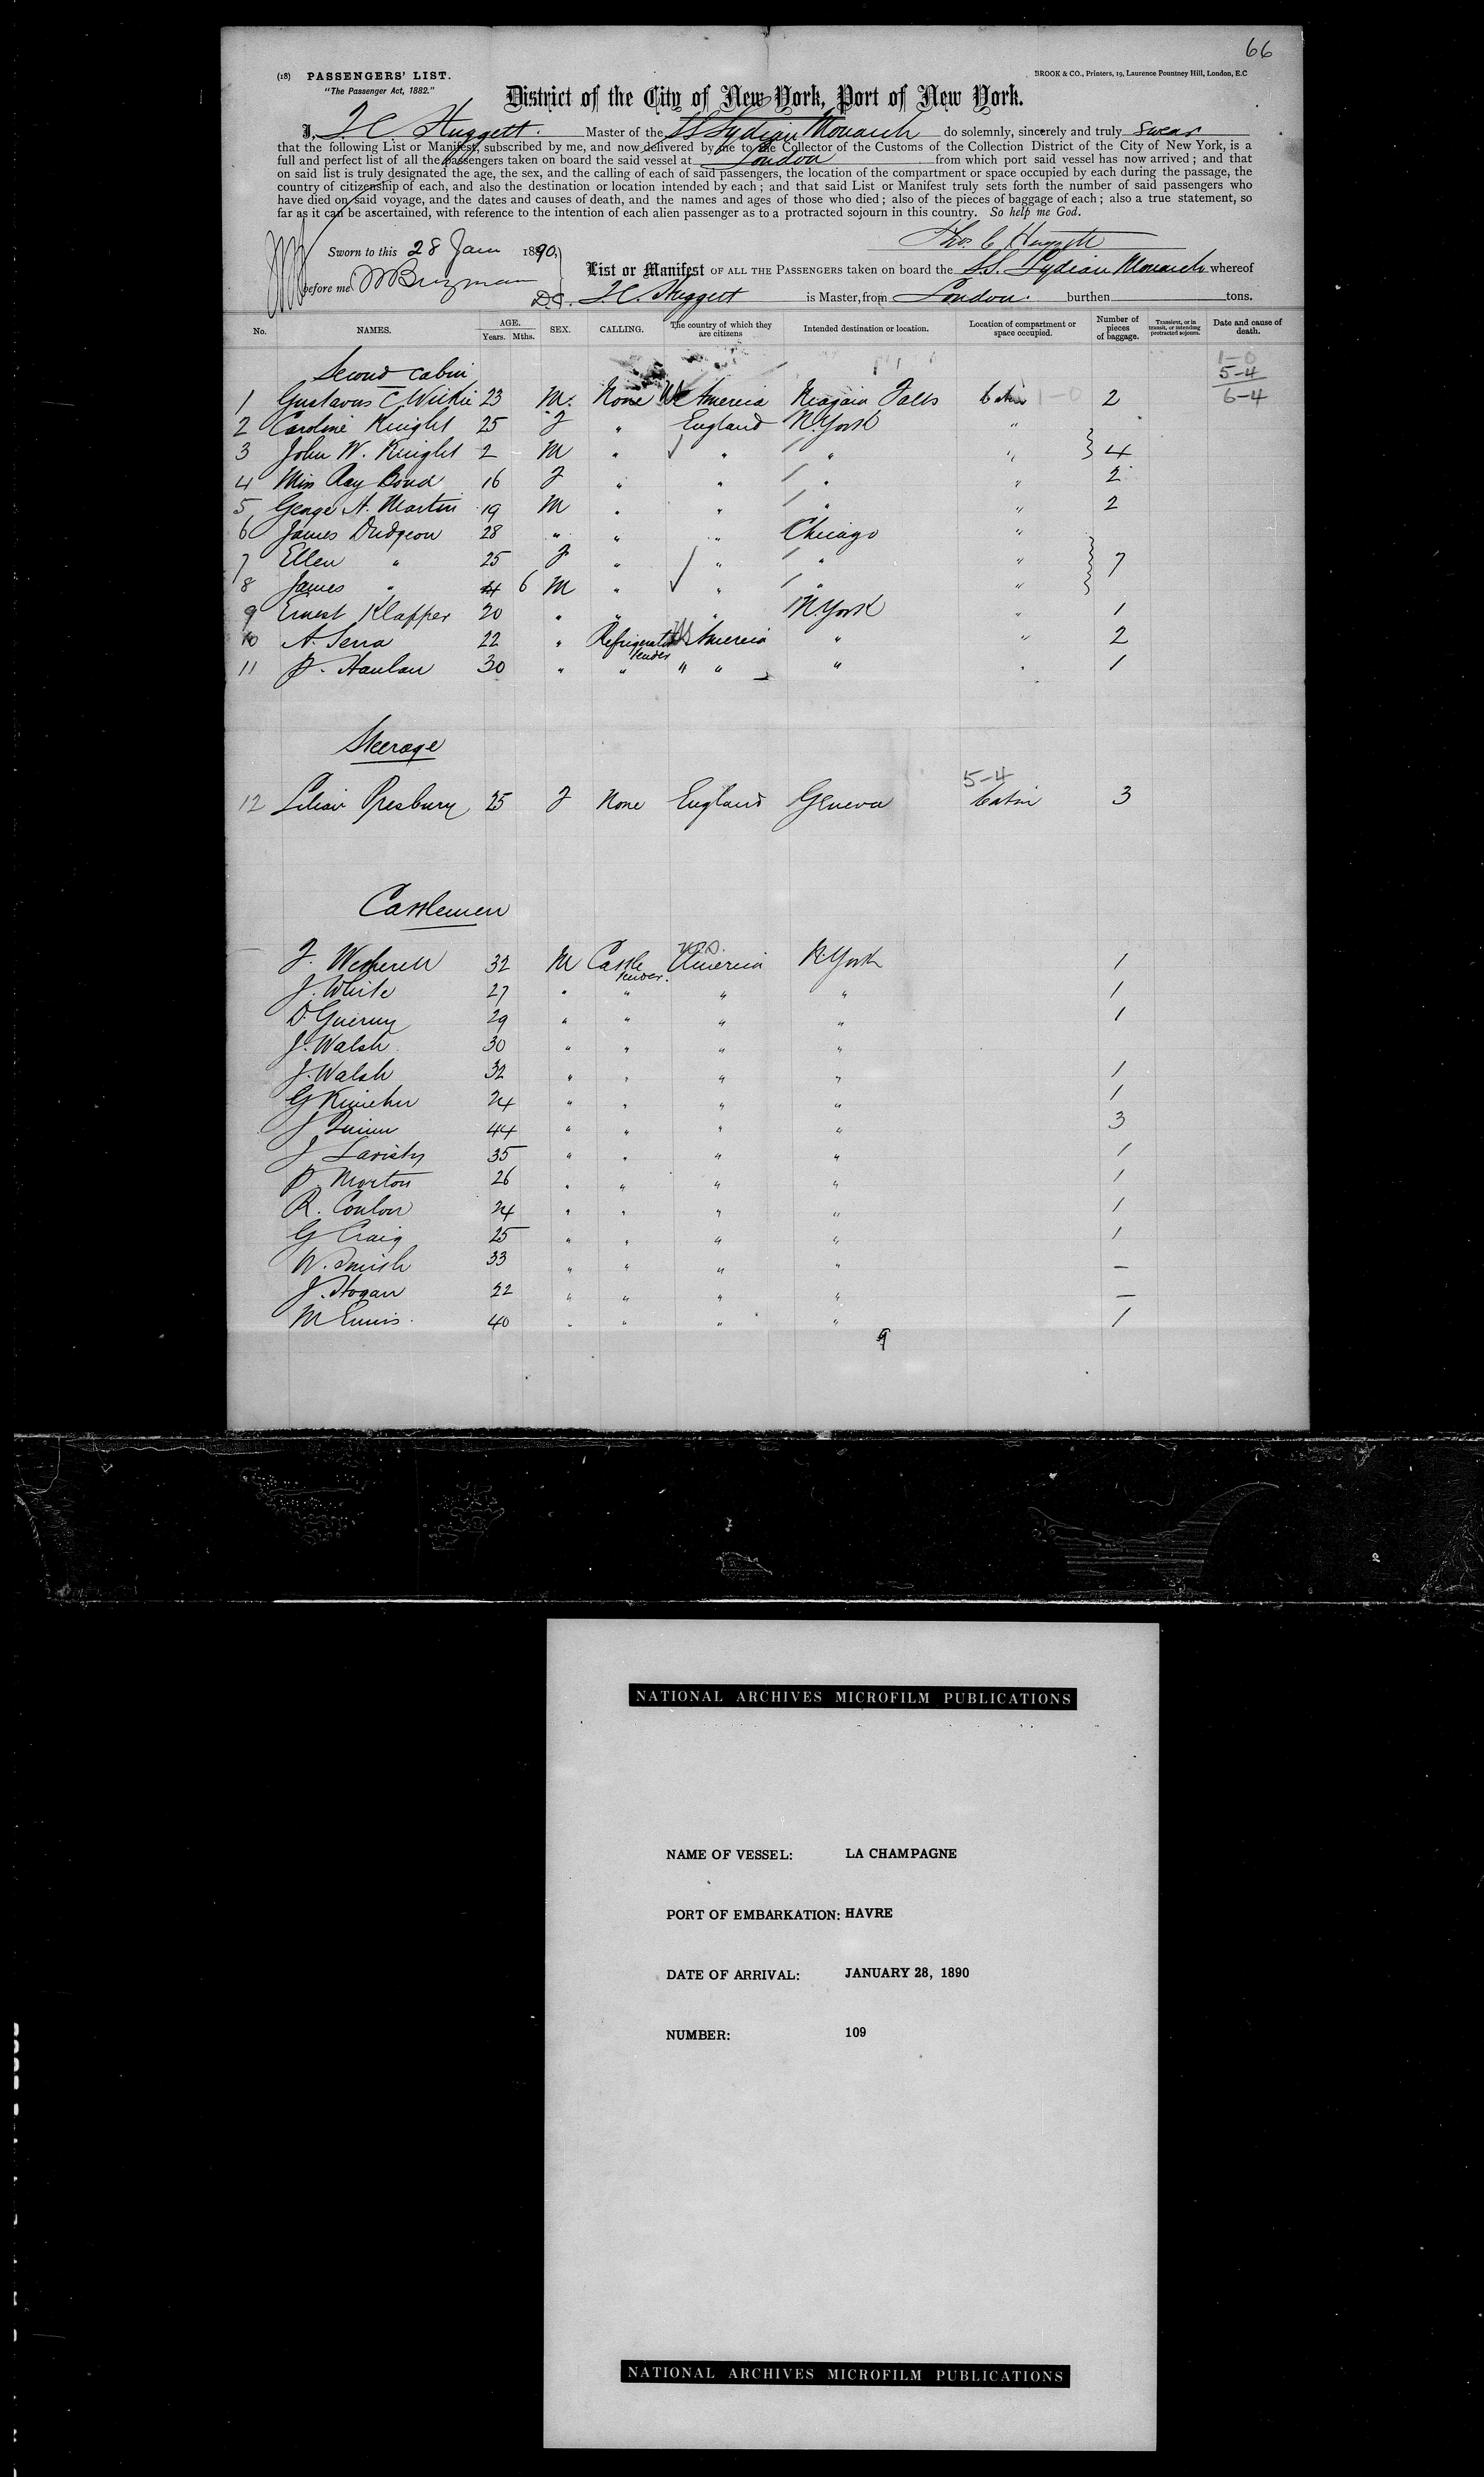 66
(18) PASSENGERS' LIST.
BROOK & CO., Printers, 19, Laurence Pountney Hill, London, E.C
"The Passenger Act, 1882."
District of the City of New York, Port of New York.
I, T C Huggett. Master of the SS Lydian Monarch do solemnly, sincerely and truly swear
that the following List or Manifest, subscribed by me, and now delivered by me to the Collector of the Customs of the Collection District of the City of New York, is a
full and perfect list of all the passengers taken on board the said vessel at London from which port said vessel has now arrived; and that
on said list is truly designated the age, the sex, and the calling of each of said passengers, the location of the compartment or space occupied by each during the passage, the
country of citizenship of each, and also the destination or location intended by each; and that said List or Manifest truly sets forth the number of said passengers who
have died on said voyage, and the dates and causes of death, and the names and ages of those who died; also of the pieces of baggage of each; also a true statement, so
far as it can be ascertained, with reference to the intention of each alien passenger as to a protracted sojourn in this country. So help me God.
Thos. C Huggett
Sworn to this 28 Jan 1890,
List or Manifest OF ALL THE PASSENGERS taken on board the S.S. Lydian Monarch whereof
before me D.C. T.C. Huggett is Master, from London. burthen tons.
No. NAMES. AGE. Years. Mths. SEX. CALLING. The country of which they are citizens Intended destination or location. Location of compartment or space occupied. Number of pieces of baggage. Transient, or in transit, or intending protracted sojourn. Date and cause of death.
1-0
Second Cabin 5-4
1 Gustavus C Wilkie 23 M. None US America Niagara Falls Cabin 1-0 2 6-4
2 Caroline Knight 25 F " England N. York "
3 John W. Knight 2 M " " " " 4
4 Miss Ray Bond 16 F " " " " 2
5 George A. Martin 19 M " " " " 2
6 James Dudgeon 28 " " " Chicago "
7 Ellen " 25 F " " " " 7
8 James " 6 M " " " "
9 Ernest Klapper 20 " " " N. York " 1
10 A. Serra 22 " Refrigerator tender US America " " 2
11 P. Hanlan 30 " " " " " " 1
Steerage
5-4
12 Lilian Presbury 25 F None England Geneva Cabin 3
Cattlemen
32 M Cattle tender. U.S. America N. York 1
J. White 27 " " " " 1
29 " " " " 1
J. Walsh 30 " " " "
J. Walsh 32 " " " " 1
G 24 " " " " 1
J Quinn 44 " " " " 3
J 35 " " " " 1
P. Morton 26 " " " " 1
R. Conlon 24 " " " " 1
G Craig 25 " " " " 1
W. Smith 33 " " " " —
J. Hogan 22 " " " " —
M Ennis. 40 " " " " 1
9
NATIONAL ARCHIVES MICROFILM PUBLICATIONS
NAME OF VESSEL: LA CHAMPAGNE
PORT OF EMBARKATION: HAVRE
DATE OF ARRIVAL: JANUARY 28, 1890
NUMBER: 109
NATIONAL ARCHIVES MICROFILM PUBLICATIONS